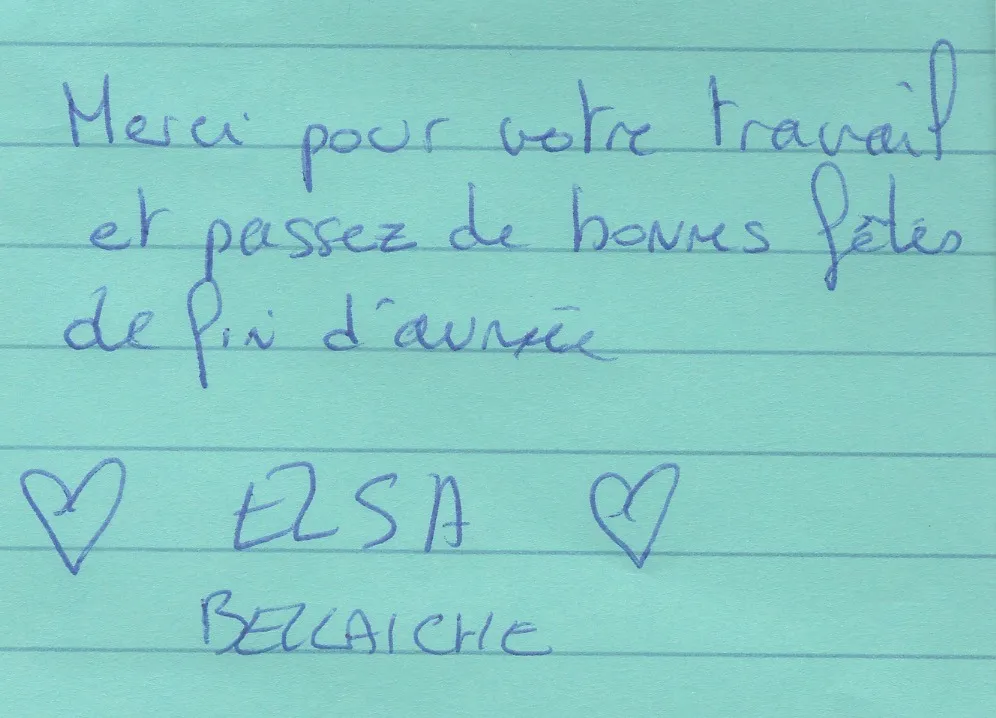 Merci pour votre travail
et passez de bonnes fêtes
de fin d'année
♡ ELSA ♡
BELLAICHE